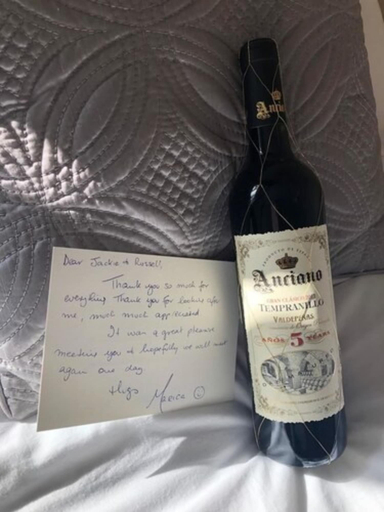 Dear Jackie & Russell,
Thank you so much for
everything. Thank you for looking after
me, much much appreciated
It was a great pleasure
meeting you & hopefully we will meet
again one day
Hugs
Anciano
Anciano
GRAN CLÁSICO
TEMPRANILLO
VALDEPEÑAS
AÑOS 5 YEARS